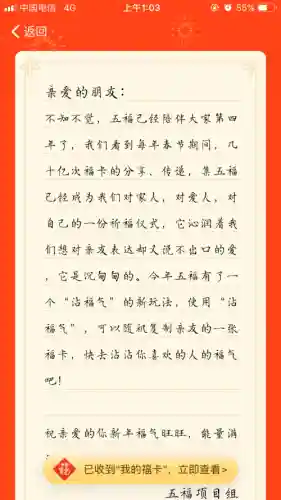 中国电信 4G 上午1:03 55%
返回
亲爱的朋友：
不知不觉，五福已经陪伴大家第四
年了，我们看到每年春节期间，几
十亿次福卡的分享、传递，集五福
已经成为我们对家人，对爱人，对
自己的一份祈福仪式，它沁润着我
们想对亲友表达却又说不出口的爱
，它是沉甸甸的。今年五福有了一
个“沾福气”的新玩法，使用“沾
福气”，可以随机复制亲友的一张
福卡，快去沾沾你喜欢的人的福气
吧！
祝亲爱的你新年福气旺旺，能量满
已收到“我的福卡”，立即查看>
五福项目组